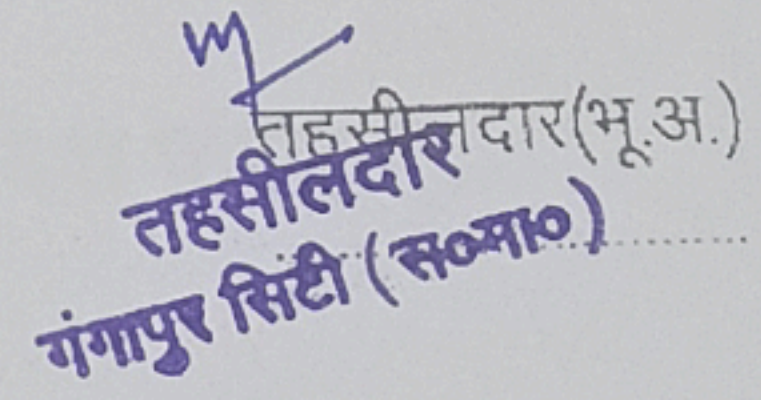 तहसीलदार(भू.अ.)
तहसीलदार
गंगापुर सिटी (स०मा०)